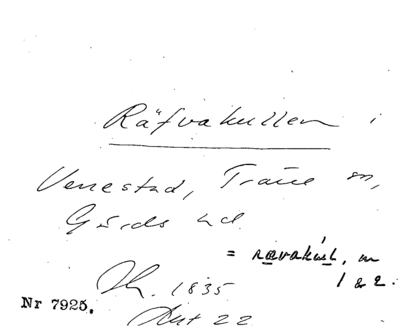 Räfvakullen i
Venestad, Träne sn,
Gärds hd.
= ravakúsh, m
1 & 2.
1835
Nr 7925.
22